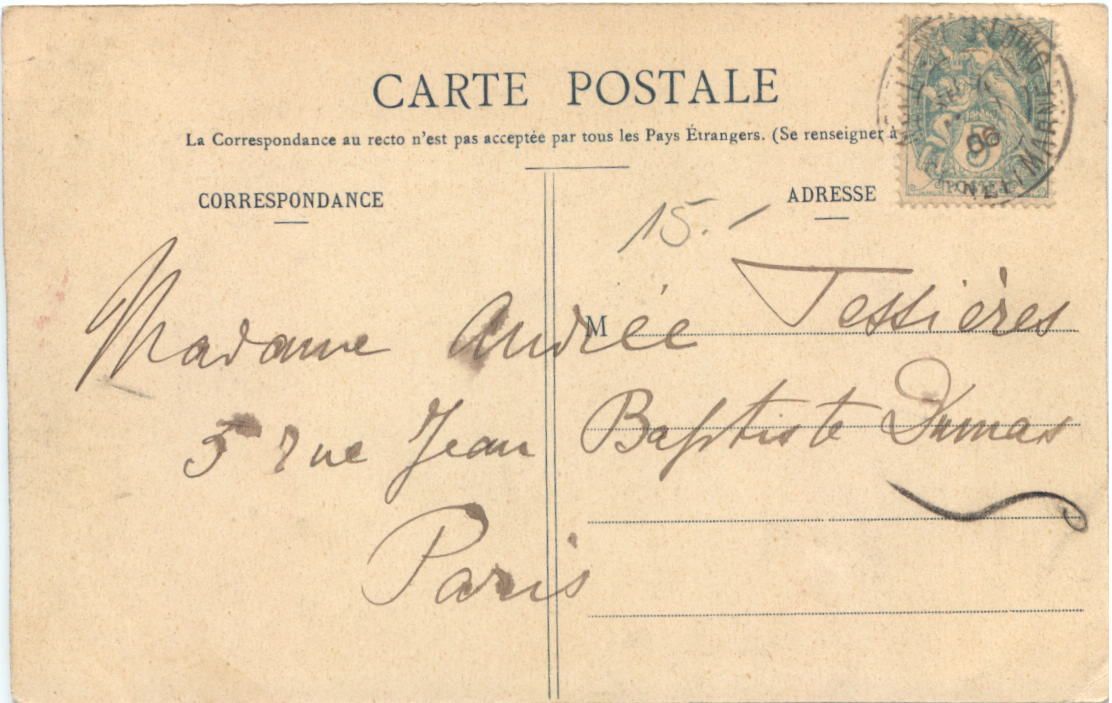 CARTE POSTALE
La Correspondance au recto n'est pas acceptée par tous les Pays Étrangers. (Se renseigner à
CORRESPONDANCE
ADRESSE
15.-
M
Madame Andrée Tessières
5 rue Jean Baptiste Dumas
Paris
06
5
MARNE